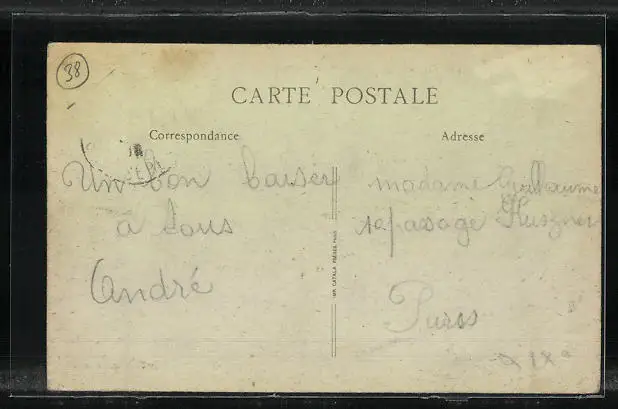 38
CARTE POSTALE
Correspondance
Adresse
Un bon baiser
a tous
André
madame Guillaume
passage
Paris
XIXe
IMP. CATALA FRÈRES, PARIS